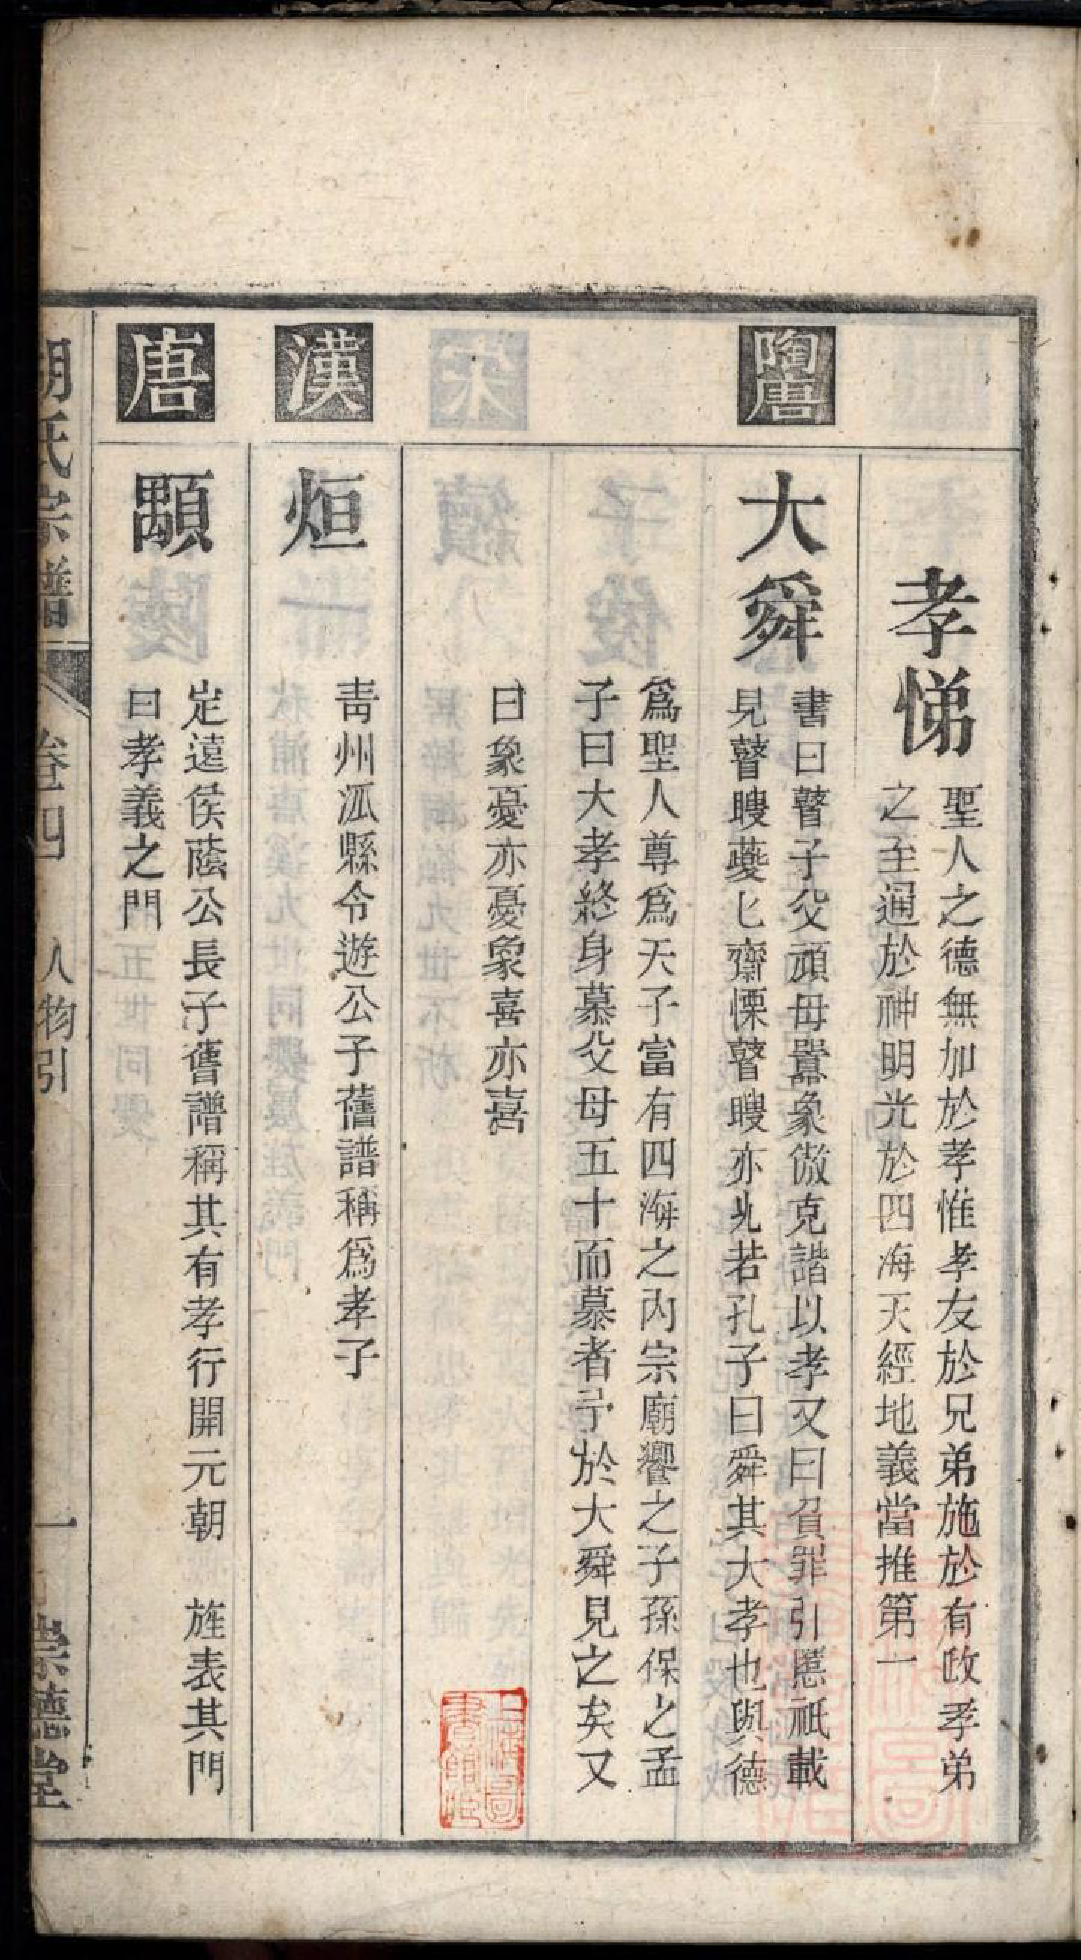 孝悌
聖人之德無加於孝惟孝友於兄弟施於有政孝弟
之至通於神明光於四海天經地義當推第一
陶唐
大舜
書曰瞽子父頑母嚚象傲克諧以孝又曰負罪引慝祗載
見瞽瞍夔夔齋慄瞽瞍亦允若孔子曰舜其大孝也與德
爲聖人尊爲天子富有四海之内宗廟饗之子孫保之孟
子曰大孝終身慕父母五十而慕者予於大舜見之矣又
曰象憂亦憂象喜亦喜
漢
烜
青州泒縣令遊公子舊譜稱爲孝子
唐
顒
定遠侯蔭公長子舊譜稱其有孝行開元朝 旌表其門
曰孝義之門
胡氏宗譜
卷四
人物引
一
崇德堂
上海圖
書館藏